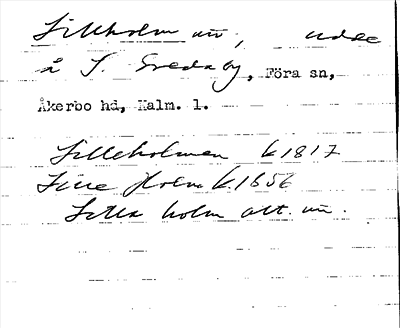 Lillholm un, udde
å S. Greda by, Föra sn,
Åkerbo hd, Kalm. l.
Lilleholmen k 1817
Lille Holm k. 1656
Lilla holm alt. un.